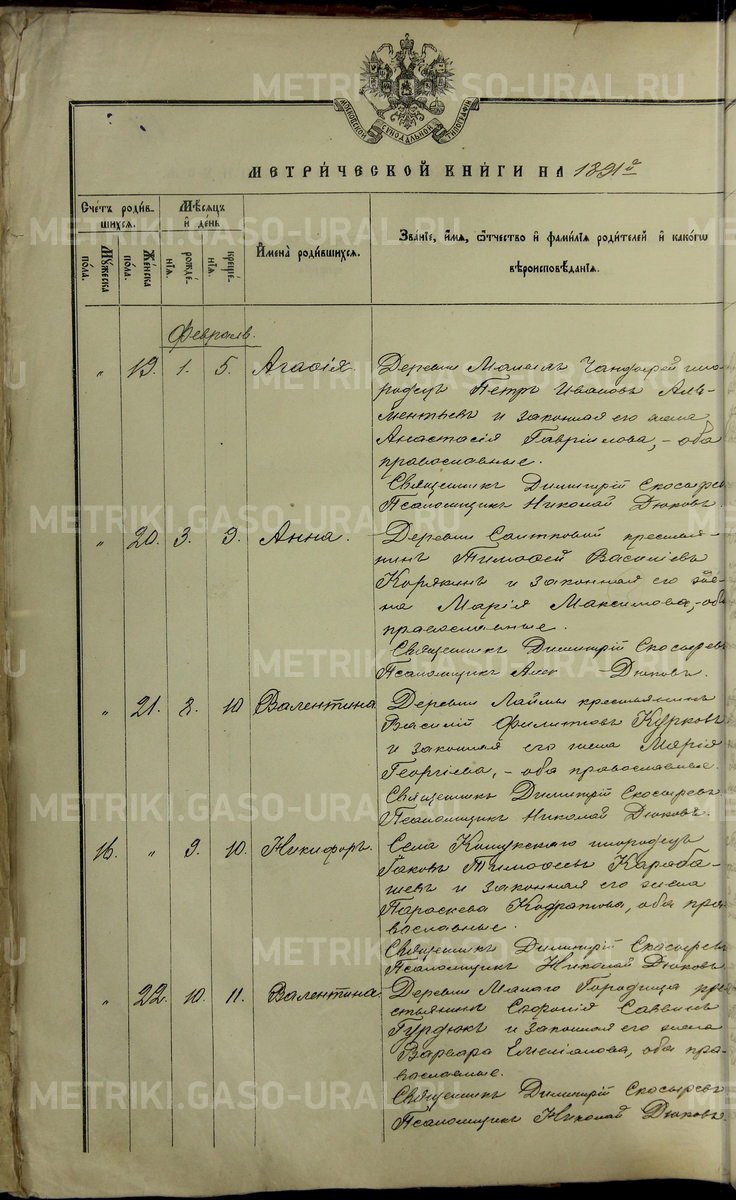 МОСКОВСКОЙ СѴНОДАЛЬНОЙ ТИПОГРАФІИ
МЕТРИЧЕСКОЙ КНИГИ НА 1891й
Счетъ родив-
шихся.
Мужеска пола.
Женска пола.
Мѣсяцъ
и день
рожде-
нія.
креще-
нія.
Имена родившихся.
Званіе, имя, ѿтчество и фамилія родителей и какогѡ
вѣроисповѣданія.
Февраль.
„ 19. 1. 5. Агаѳія. Деревни
Петръ Ивановъ Аль-
ментьевъ и законная его жена
Анастасія Гавриилова, – оба
православные.
Священникъ Димитрій Скосыревъ
Псаломщикъ Николай Дюковъ.
„ 20. 3. 9. Анна. Деревни Саитковой крестья-
нинъ Тимофей Василіевъ
Корякинъ и законная его же-
на Марія Максимова, – оба
православные.
Священникъ Димитрій Скосыревъ
Псаломщикъ Дюковъ.
„ 21. 8. 10 Валентина Деревни Лаймы крестьянинъ
Василій Филиповъ Курковъ
и законная его жена Марія
Георгіева, – оба православные.
Священникъ Димитрій Скосыревъ
Псаломщикъ Николай Дюковъ.
16. „ 9. 10. Никифоръ. Села Кошукскаго инородецъ
Іаковъ Тимофеевъ Караба-
шевъ и законная его жена
Параскева Кодратова, оба пра-
вославные.
Священникъ Димитрій Скосыревъ
Псаломщикъ Николай Дюковъ
„ 22. 10. 11. Валентина Деревни Малаго Городища кре-
стьянинъ Софоній Саввинъ
Гурдюкъ и законная его жена
Варвара Емеліанова, оба пра-
вославные.
Священникъ Димитрій Скосыревъ
Псаломщикъ Николай Дюковъ.
METRIKI.GASO-URAL.RU